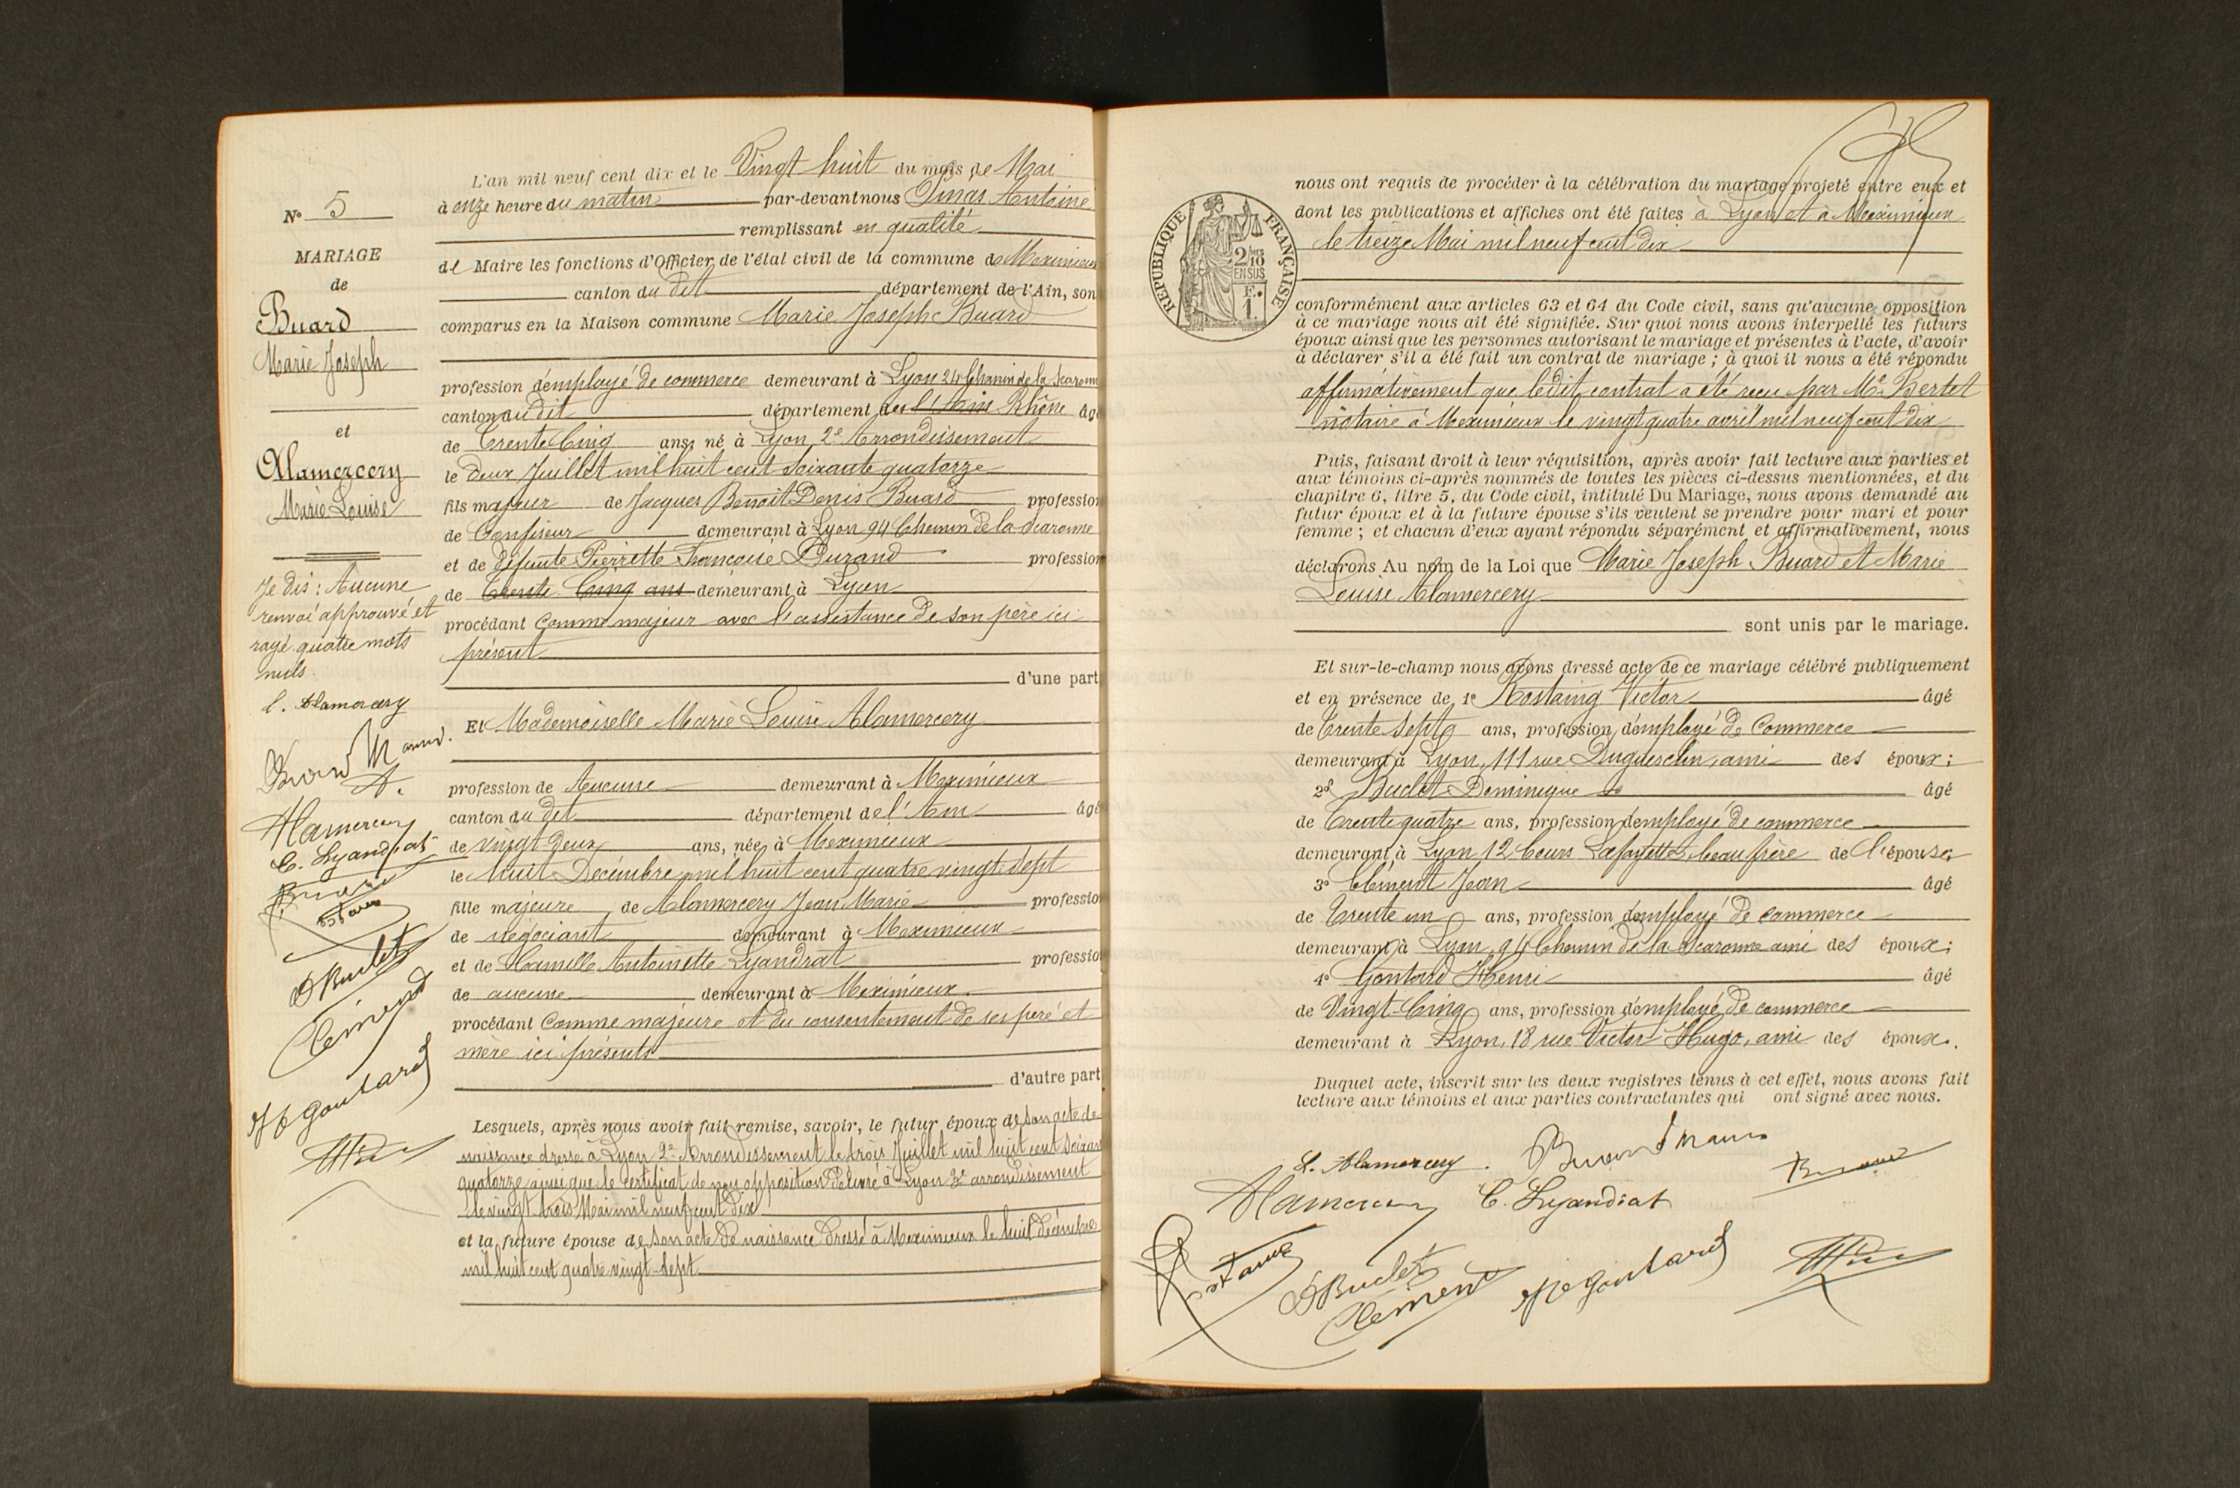 N° 5
MARIAGE
de
Buard
Marie Joseph
et
Alamercery
Marie Louise
Je dis : Aucune
renvoi approuvé et
rayé quatre mots
nuls.
L. Alamercery
Alamercery
C. Lyandrat
DBuclet
Clément
H Goutard
L'an mil neuf cent dix et le Vingt huit du mois de Mai
à onze heure du matin par-devant nous Pinas Antoine
remplissant en qualité
de Maire les fonctions d'Officier de l'état civil de la commune de Meximieux
canton du dit département de l'Ain, son
comparus en la Maison commune Marie Joseph Buard
profession d'employé de commerce demeurant à Lyon 24 Chemin de la Scaronne
canton du dit département de l'Ain Rhône âgé
de Trente Cinq ans, né à Lyon, 2e Arrondissement
le deux Juillet mil huit cent soixante quatorze
fils majeur de Jacques Benoit Denis Buard profession
de Confiseur demeurant à Lyon 94 Chemin de la Scaronne
et de défunte Pierrette Francoise Durand profession
de Trente Cinq ans demeurant à Lyon
procédant Comme majeur avec l'assistance de son père ici
présent
d'une part
Et Mademoiselle Marie Louise Alamercery
profession de Aucune demeurant à Meximieux
canton du dit département de l'Ain âgé
de vingt deux ans, née à Meximieux
le huit Décembre mil huit cent quatre vingt sept
fille majeure de Alamercery Jean Marie profession
de négociant demeurant à Meximieux
et de Camille Antoinette Lyandrat profession
de aucune demeurant à Meximieux
procédant Comme majeure et du consentement de ses père et
mère ici présents
d'autre part
Lesquels, après nous avoir fait remise, savoir, le futur époux de son acte de
naissance dressé à Lyon 2e Arrondissement le trois Juillet mil huit cent soixante
quatorze ainsi que le certificat de non opposition délivré à Lyon 3e arrondissement
le vingt trois Mai mil neuf cent dix
et la future épouse de son acte de naissance dressé à Meximieux le huit décembre
mil huit cent quatre vingt-sept
RÉPUBLIQUE FRANÇAISE
2/10
EN SUS
F.
1.
nous ont requis de procéder à la célébration du mariage projeté entre eux et
dont les publications et affiches ont été faites à Lyon et à Meximieux
le treize Mai mil neuf cent dix
conformément aux articles 63 et 64 du Code civil, sans qu'aucune opposition
à ce mariage nous ait été signifiée. Sur quoi nous avons interpellé les futurs
époux ainsi que les personnes autorisant le mariage et présentes à l'acte, d'avoir
à déclarer s'il a été fait un contrat de mariage ; à quoi il nous a été répondu
affirmativement que ledit contrat a été recu par Me Bertet
notaire à Meximieux le vingt quatre avril mil neuf cent dix
Puis, faisant droit à leur réquisition, après avoir fait lecture aux parties et
aux témoins ci-après nommés de toutes les pièces ci-dessus mentionnées, et du
chapitre 6, titre 5, du Code civil, intitulé Du Mariage, nous avons demandé au
futur époux et à la future épouse s'ils veulent se prendre pour mari et pour
femme ; et chacun d'eux ayant répondu séparément et affirmativement, nous
déclarons Au nom de la Loi que Marie Joseph Buard et Marie
Louise Alamercery
sont unis par le mariage.
Et sur-le-champ nous avons dressé acte de ce mariage célébré publiquement
et en présence de 1° Rostaing Victor âgé
de Trente sept ans, profession d'employé de Commerce
demeurant à Lyon, 111 rue Duguesclin, ami des époux ;
2° Buclet Dominique âgé
de Trente quatre ans, profession d'employé de commerce
demeurant à Lyon 12 Cours Lafayette, beau frère de l'épouse,
3° Clément Jean âgé
de Trente un ans, profession d'employé de commerce
demeurant à Lyon 94 Chemin de la Scaronne ami des époux ;
4° Goutard Henri âgé
de Vingt-Cinq ans, profession d'employé de commerce
demeurant à Lyon, 18 rue Victor Hugo, ami des époux.
Duquel acte, inscrit sur les deux registres tenus à cet effet, nous avons fait
lecture aux témoins et aux parties contractantes qui ont signé avec nous.
L. Alamercery
Alamercery
C. Lyandrat
DBuclet
Clément
H Goutard